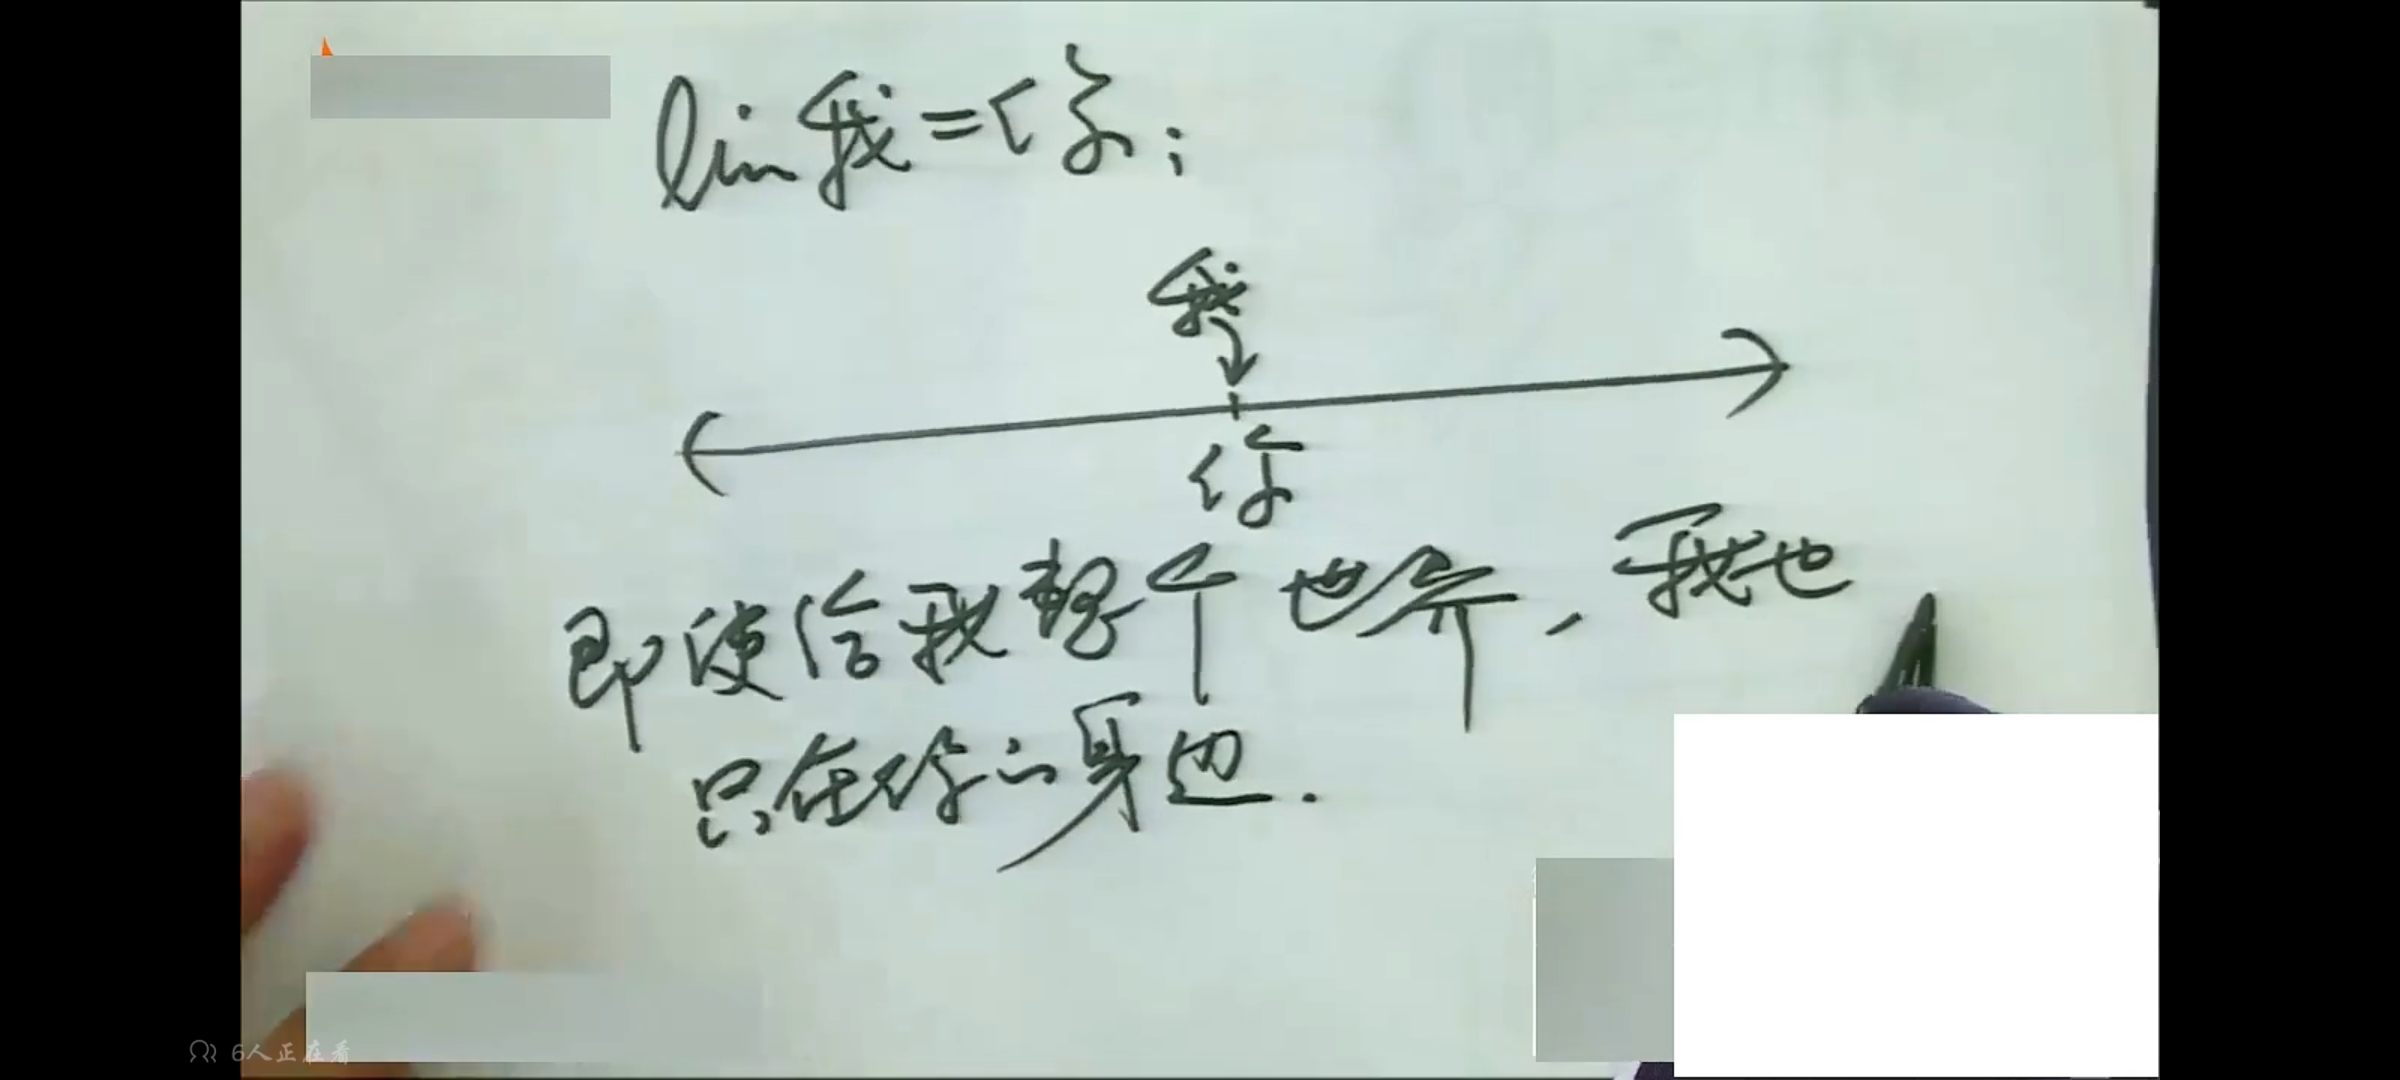 lim我=你;
我
你
即使给我整个世界,我也
只在你的身边.
6人正在看